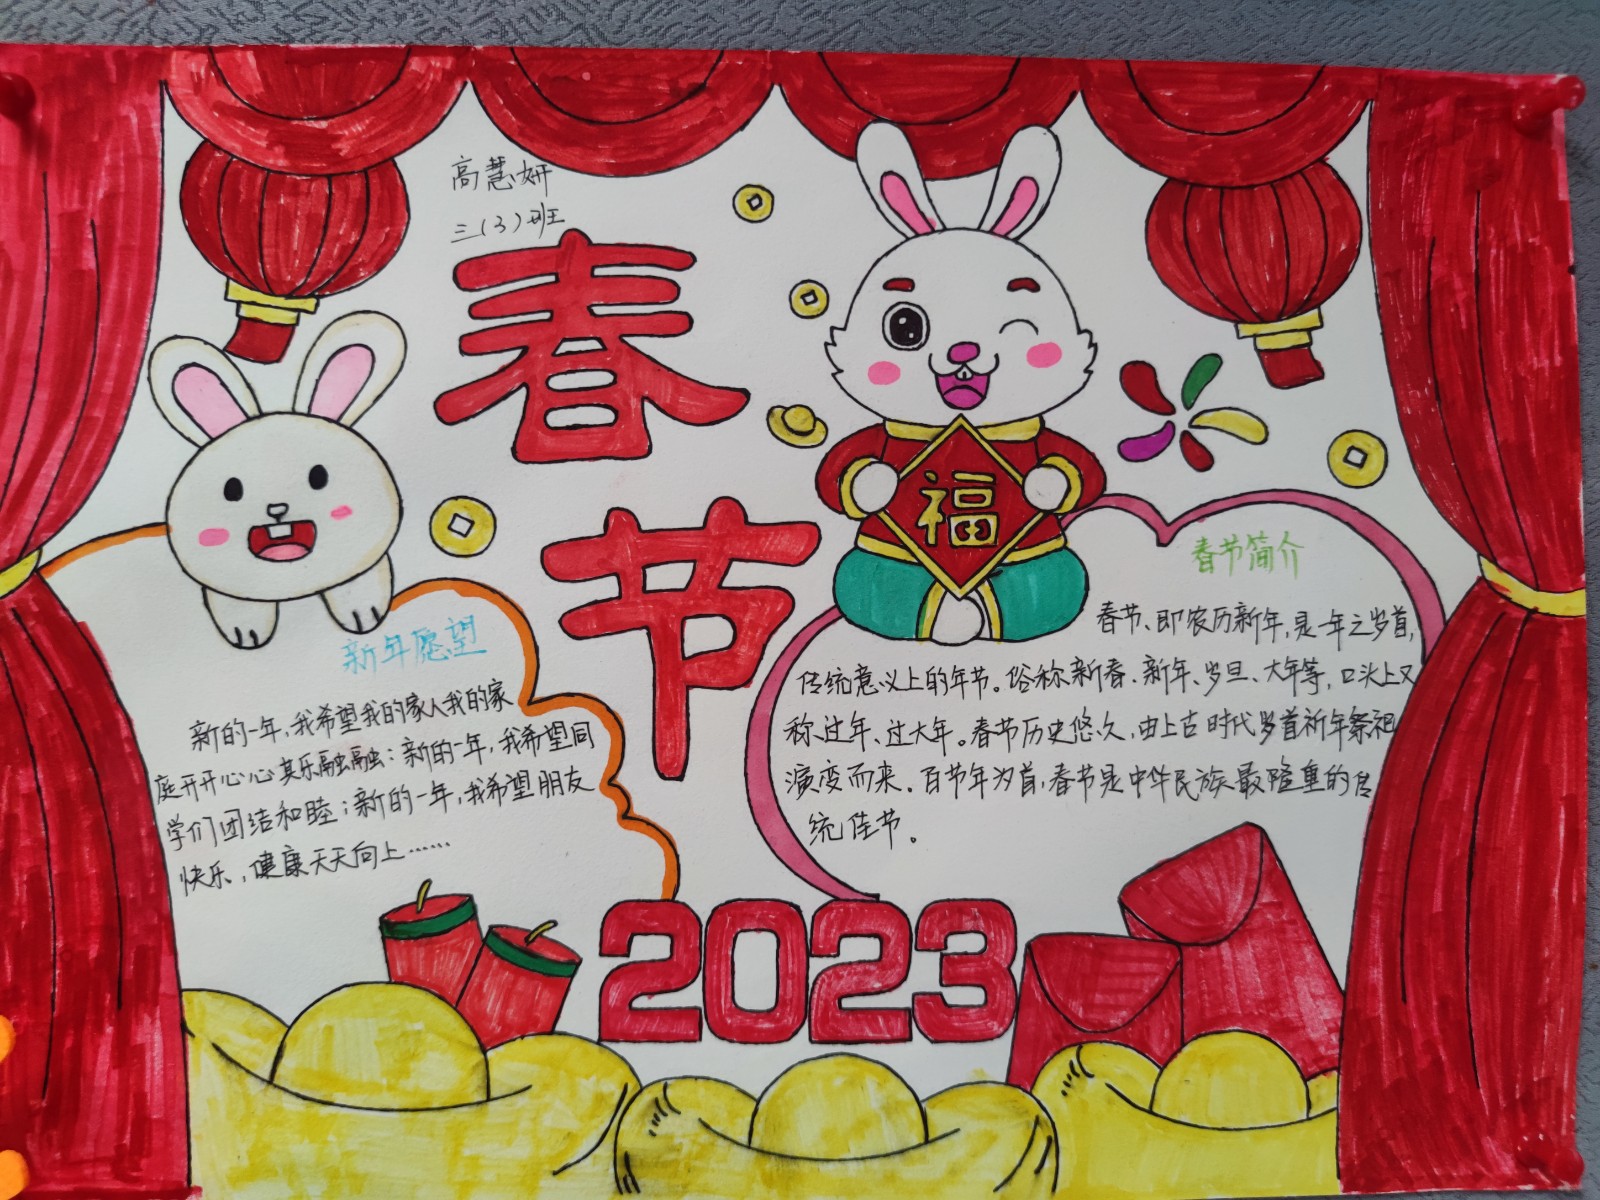 高慧妍
三(3)班
春
节
福
新年愿望
新的一年,我希望我的家人我的家
庭开开心心其乐融融;新的一年,我希望同
学们团结和睦;新的一年,我希望朋友
快乐,健康天天向上……
春节简介
春节、即农历新年,是一年之岁首,
传统意义上的年节。俗称新春、新年、岁旦、大年等,口头上又
称过年、过大年。春节历史悠久,由上古时代岁首祈年祭祀
演变而来。百节年为首,春节是中华民族最隆重的传
统佳节。
2023